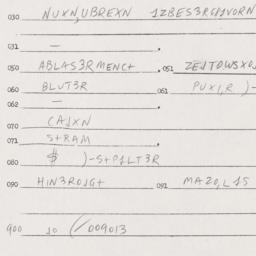 030 NUXN,UBREXN 1ZBES3RGA1VORN
031 —
050 ABLAS3RMENC+ . 051 ZEJTDWSXO
060 BLUT3R 061 PUX1,R )-
062 — .
070 CA1XN
071 S+RAM .
080 $ )-S+P1LT3R
090 HIN3ROJG+ 091 MAZO,L 15
900 10 (/009013